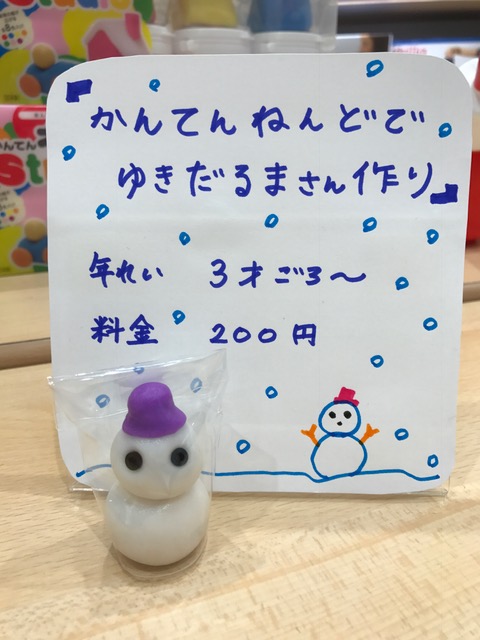 『かんてんねんどで
ゆきだるまさん作り』
年れい 3才ごろ〜
料金 200円